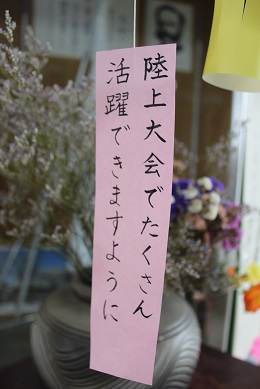 陸上大会でたくさん
活躍できますように